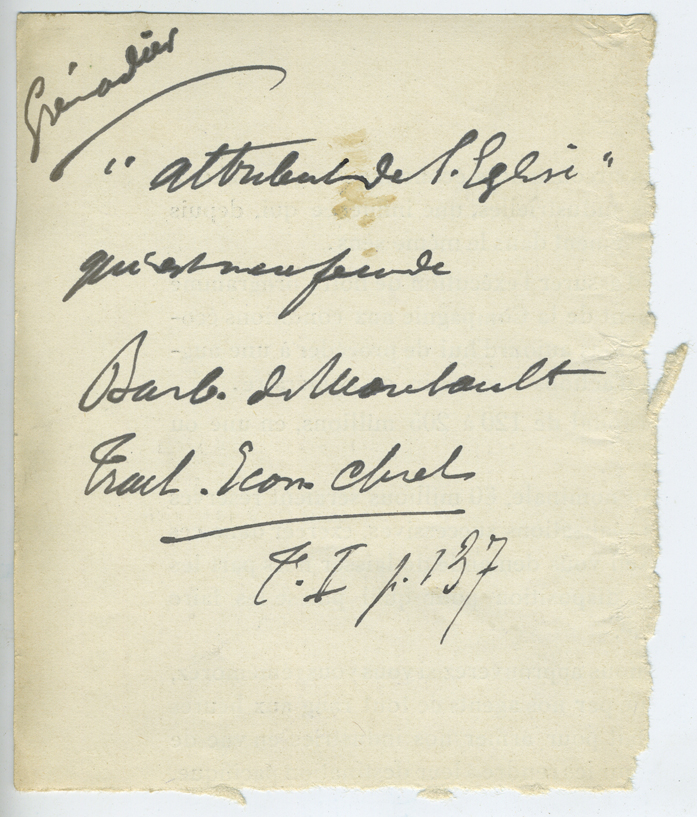 Grénadier
"attribut de l'Eglise"
qui est
Barb. de Montault
Trait. Icon Chret
T. II p. 137